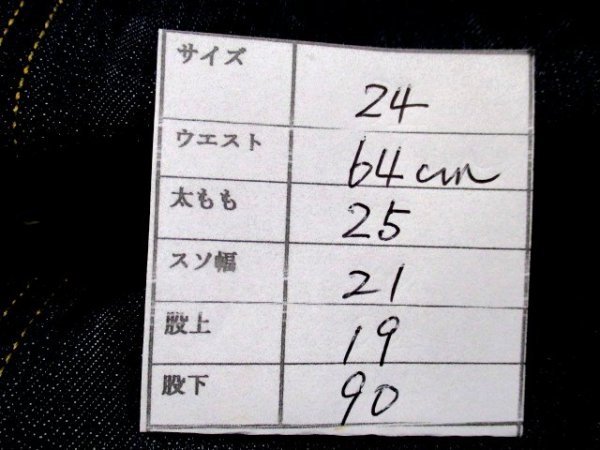 サイズ 24
ウエスト 64cm
太もも 25
スソ幅 21
股上 19
股下 90